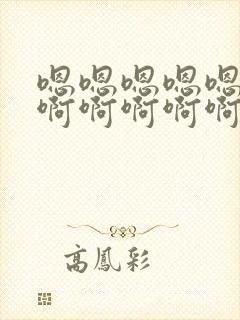 嗯嗯嗯嗯嗯
啊啊啊啊啊
高鳳彩